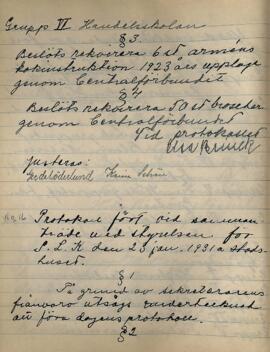 Grupp IV Handelsskolan
§3
Beslöts rekvirera 6 st arméns
kokinstruktion 1923 års upplaga
genom Centralförbundet
§4
Beslöts rekvirera 50 st broscher
genom Centralförbundet
Vid protokollet
Justeras:
Protokoll fört vid samman-
träde med styrelsen för
S.L.K. den 23 jan. 1931 å Stads-
huset.
§1
På grund av sekreterarens
frånvaro utsågs undertecknad
att föra dagens protokoll.
§2